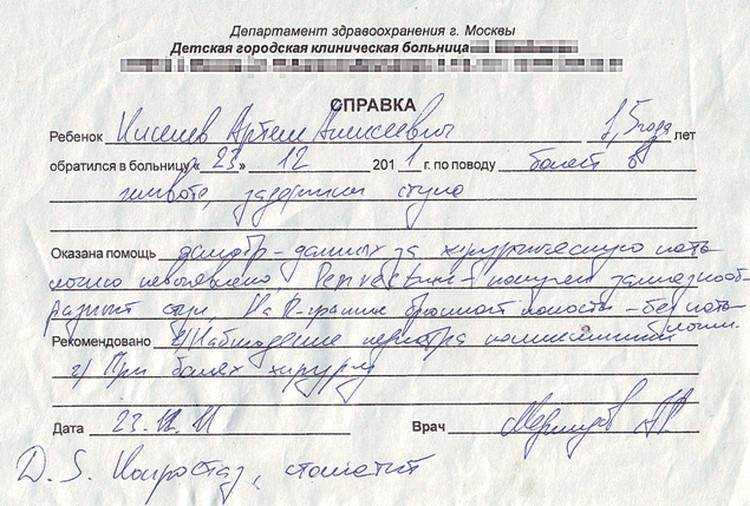 Департамент здравоохранения г. Москвы
Детская городская клиническая больница
СПРАВКА
Ребенок Киселев Артем Алексеевич 1,5 года лет
обратился в больницу «23» 12 2011 г. по поводу болей в
животе, задержки стула
Оказана помощь осмотр – данных за хирургическую пато-
логию не выявлено. Per rectum – получен
стул. На R-грамме брюшной полости – без пато-
логии.
Рекомендовано 1) Наблюдение педиатра поликлиники
2) При болях хирург
Дата 23.12.11 Врач
D.S. Копростаз, стоматит